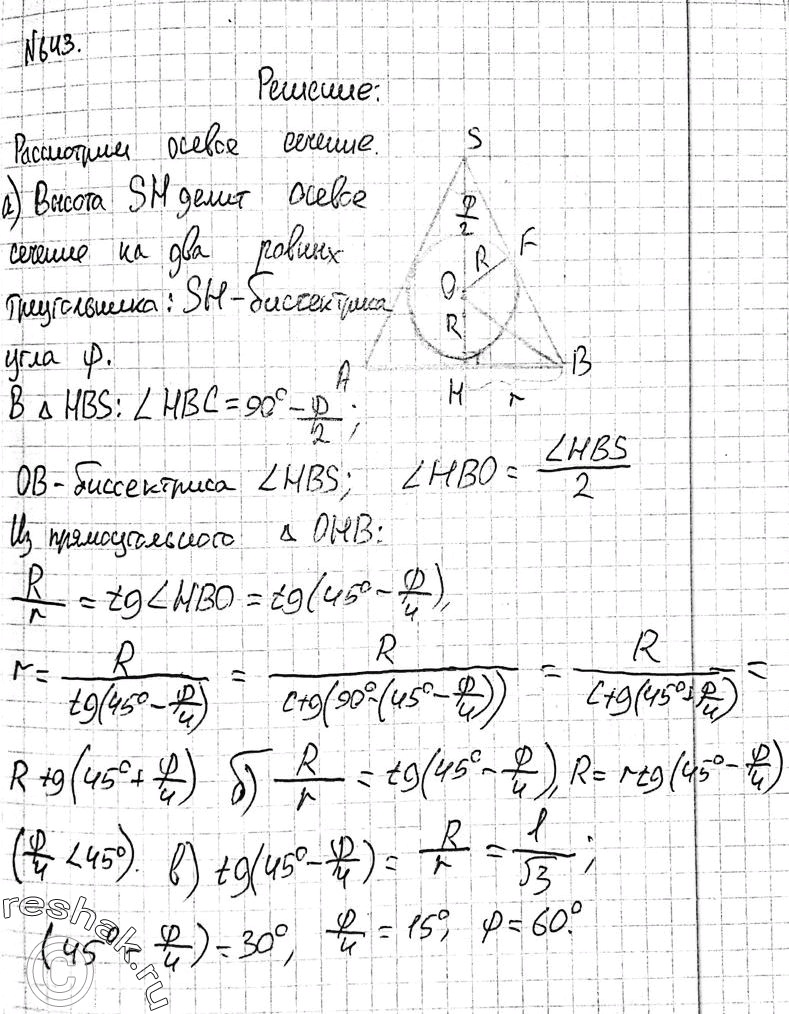 N643.
Решение:
Рассмотрим осевое сечение.
а) Высота SH делит осевое
сечение на два равных
треугольника: SH - биссектриса
угла φ.
S
φ/2
F
R
O
R
A
B
H
r
В △ HBS: ∠HBC = 90° - φ/2;
OB - биссектриса ∠HBS; ∠HBO = ∠HBS/2
Из прямоугольного △ OHB:
R/r = tg∠HBO = tg(45° - φ/4),
r = R/tg(45° - φ/4) = R/ctg(90° - (45° - φ/4)) = R/ctg(45° + φ/4) =
R tg(45° + φ/4) б) R/r = tg(45° - φ/4), R = r tg(45° - φ/4)
(φ/4 < 45°). в) tg(45° - φ/4) = R/r = 1/√3;
(45° - φ/4) = 30°, φ/4 = 15°, φ = 60°.
© reshak.ru